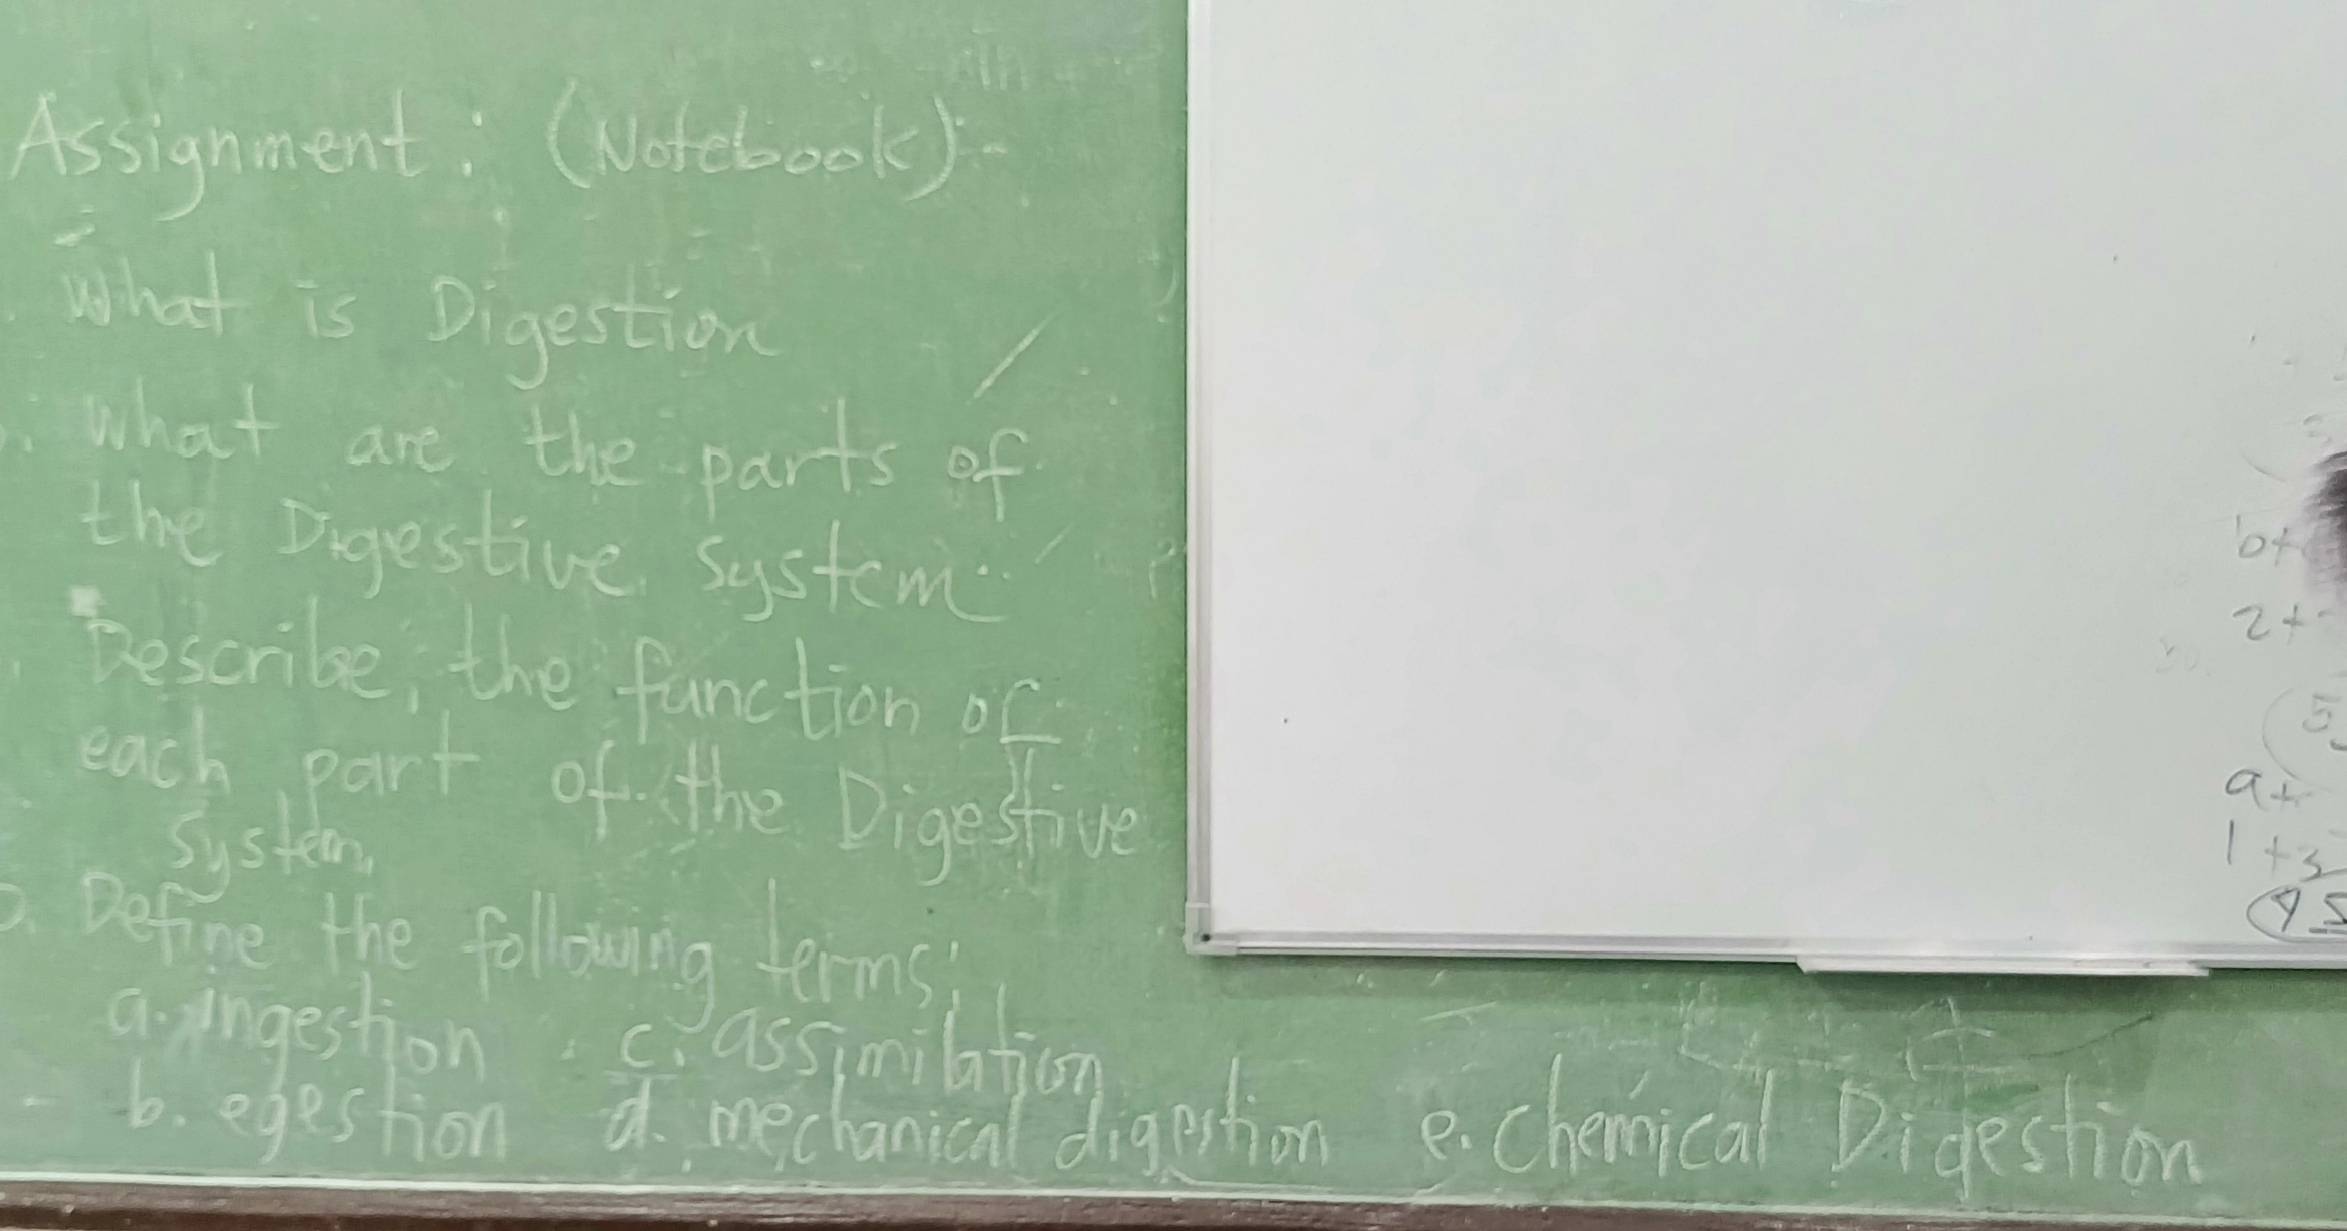 Assignment: (Notebook)
What is Digestion
What are the parts of
the Digestive System
Describe, the function of
each part of the Digestive
System.
D. Define the following terms:
a. ingestion c. assimilation
b. egestion d. mechanical digestion e. chemical Digestion
b+
2+
5
a+
1+3